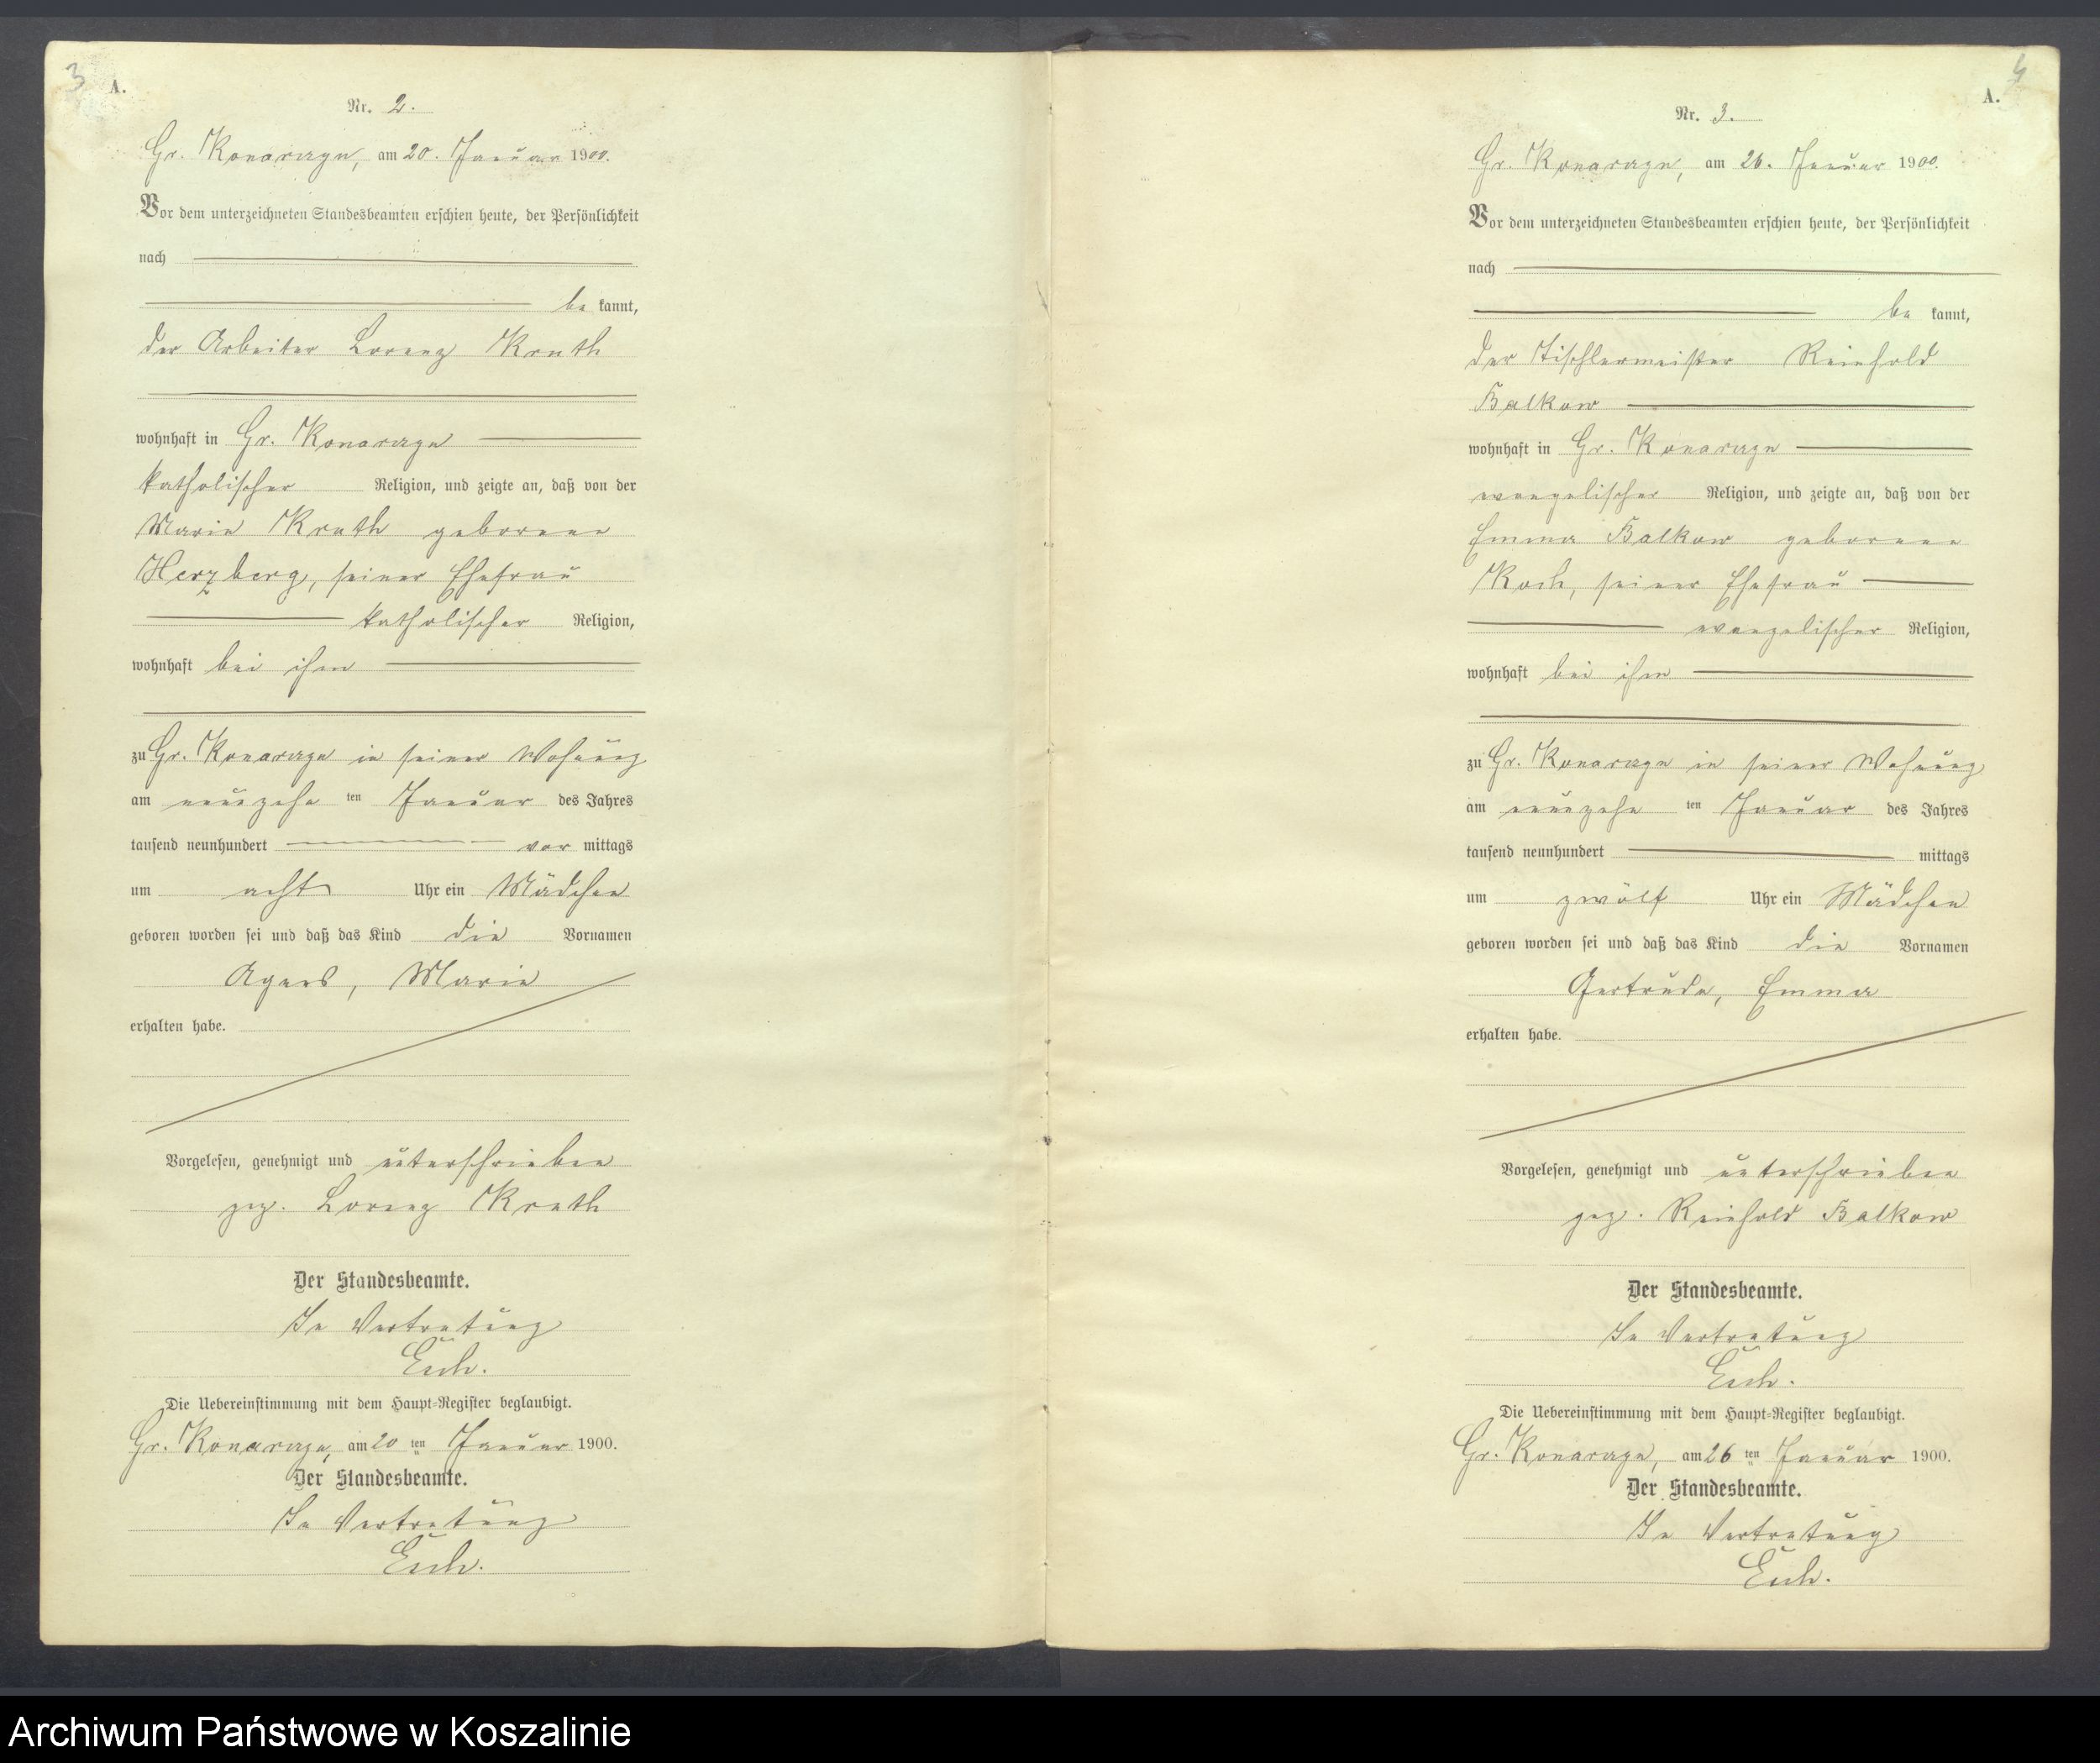 3
A.
Nr. 2.
Gr. Konarzyn, am 20. Januar 1900.
Vor dem unterzeichneten Standesbeamten erschien heute, der Persönlichkeit
nach
be kannt,
der Arbeiter Lorenz
wohnhaft in Gr. Konarzyn
katholischer Religion, und zeigte an, daß von der
Marie geborene
Herzberg, seiner Ehefrau
katholischer Religion,
wohnhaft bei ihm
zu Gr. Konarzyn in seiner Wohnung
am neunzehn ten Januar des Jahres
tausend neunhundert vor mittags
um acht Uhr ein Mädchen
geboren worden sei und daß das Kind die Vornamen
Agnes, Marie
erhalten habe.
Vorgelesen, genehmigt und unterschrieben
gez. Lorenz
Der Standesbeamte.
In Vertretung
Die Uebereinstimmung mit dem Haupt-Register beglaubigt.
Gr. Konarzyn, am 20 ten Januar 1900.
Der Standesbeamte.
In Vertretung
4
A.
Nr. 3.
Gr. Konarzyn, am 26. Januar 1900.
Vor dem unterzeichneten Standesbeamten erschien heute, der Persönlichkeit
nach
be kannt,
der Tischlermeister Reinhold
Balkow
wohnhaft in Gr. Konarzyn
evangelischer Religion, und zeigte an, daß von der
Emma Balkow geborene
Koch, seiner Ehefrau
evangelischer Religion,
wohnhaft bei ihm
zu Gr. Konarzyn in seiner Wohnung
am neunzehn ten Januar des Jahres
tausend neunhundert mittags
um zwölf Uhr ein Mädchen
geboren worden sei und daß das Kind die Vornamen
Gertrude, Emma
erhalten habe.
Vorgelesen, genehmigt und unterschrieben
gez. Reinhold Balkow
Der Standesbeamte.
In Vertretung
Die Uebereinstimmung mit dem Haupt-Register beglaubigt.
Gr. Konarzyn, am 26 ten Januar 1900.
Der Standesbeamte.
In Vertretung
Archiwum Państwowe w Koszalinie